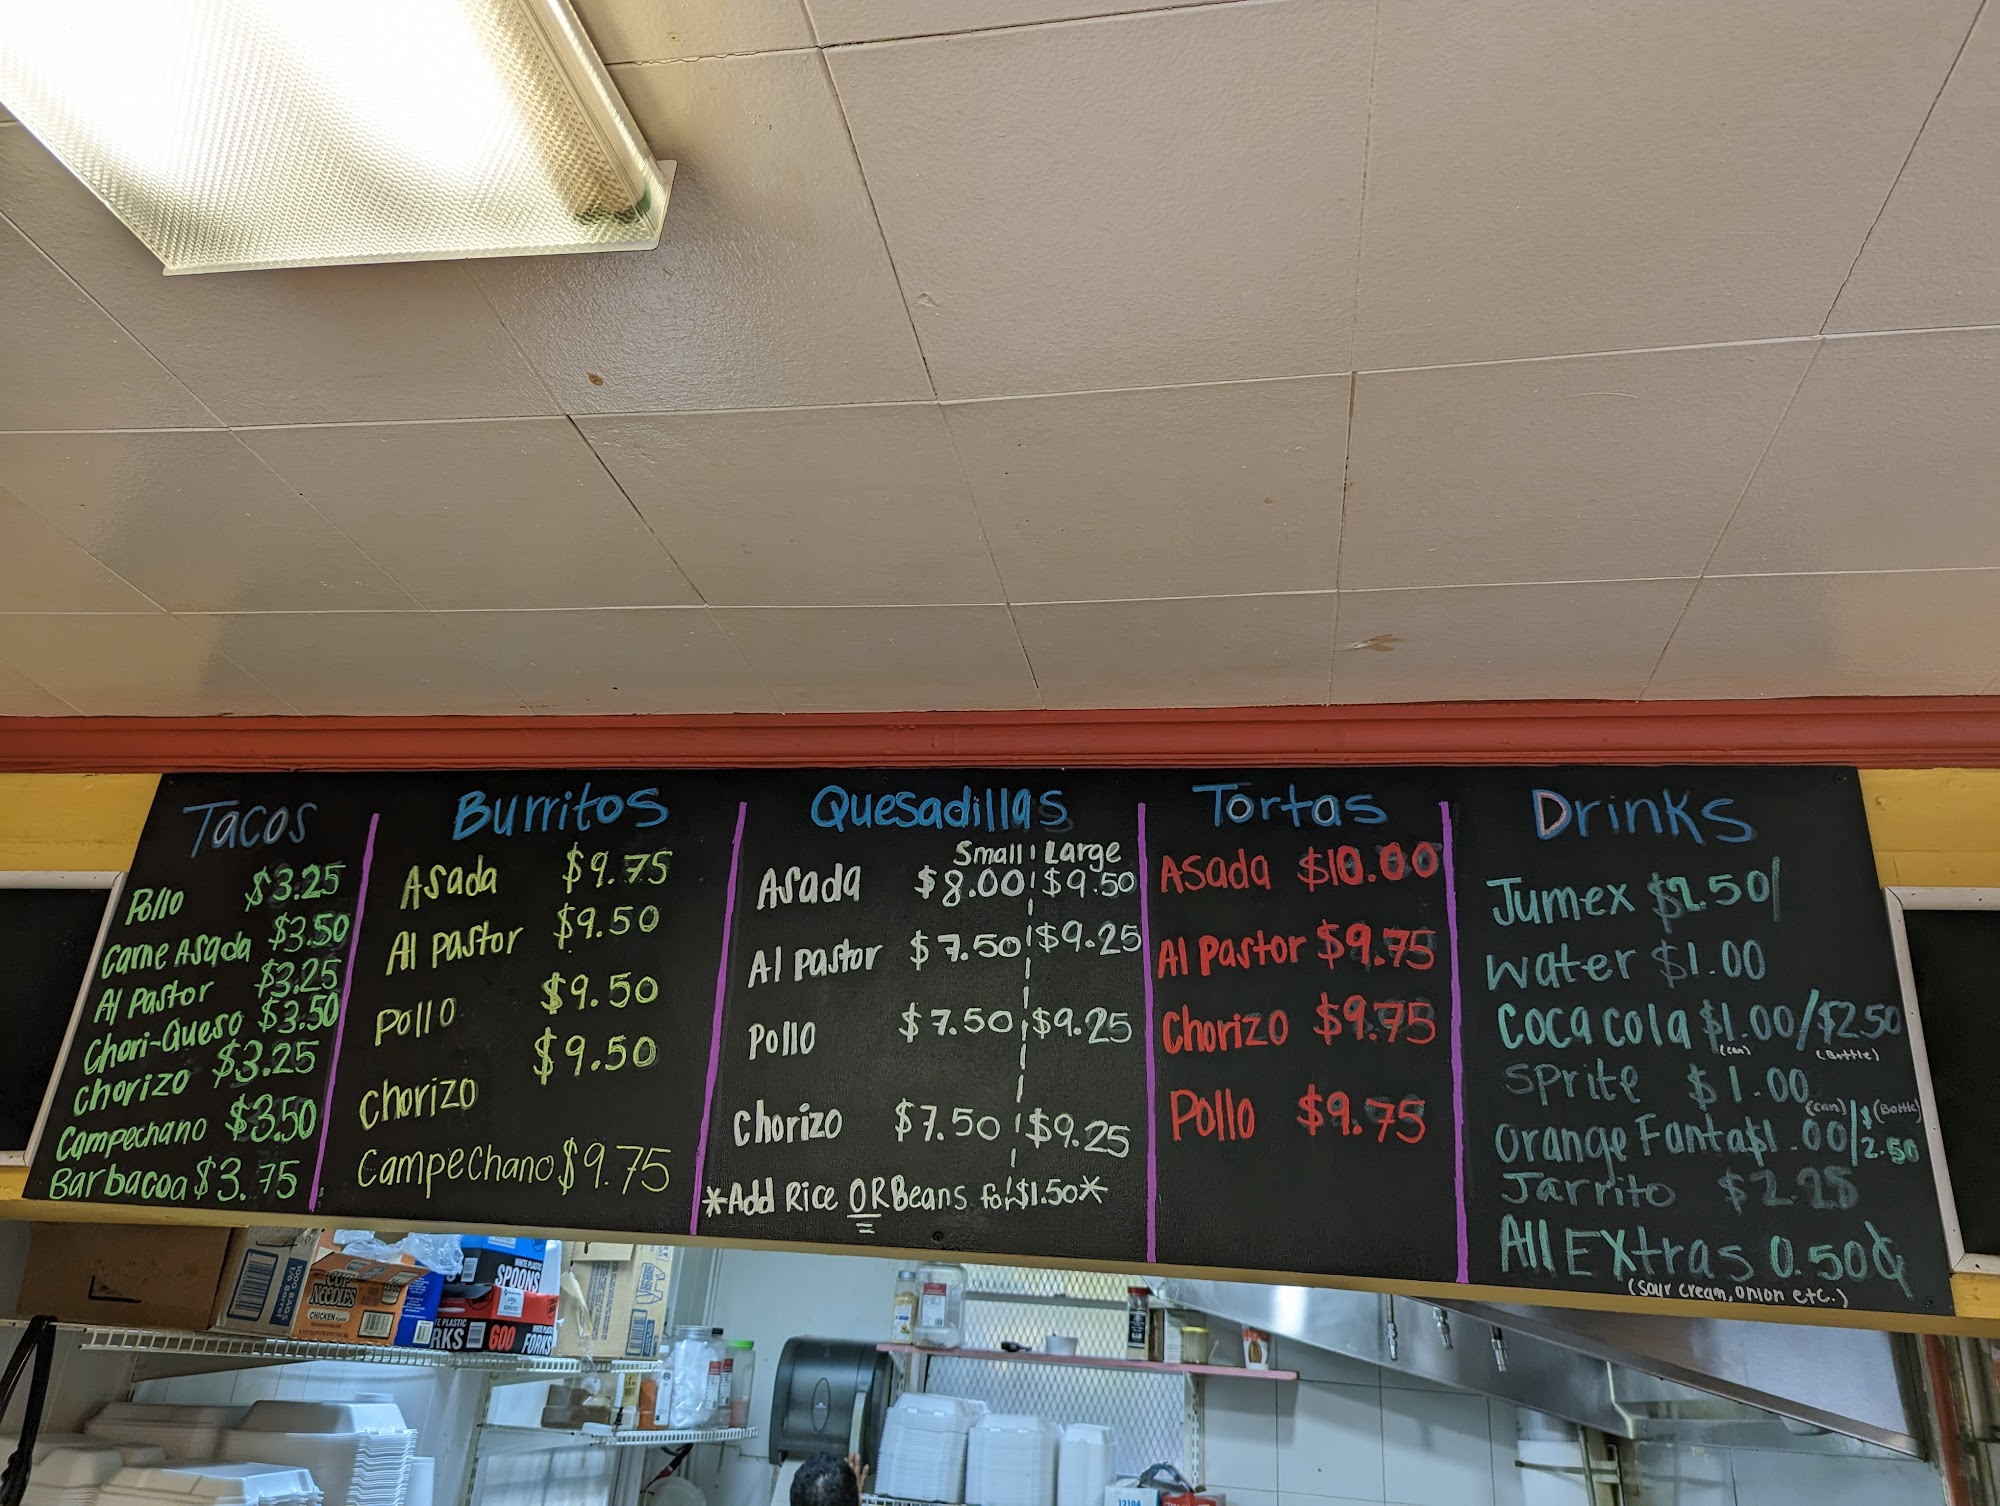 Tacos
Pollo $3.25
Carne Asada $3.50
Al Pastor $3.25
Chori-Queso $3.50
Chorizo $3.25
Campechano $3.50
Barbacoa $3.75
Burritos
Asada $9.75
Al Pastor $9.50
Pollo $9.50
Chorizo $9.50
Campechano $9.75
Quesadillas
Small Large
Asada $8.00 $9.50
Al Pastor $7.50 $9.25
Pollo $7.50 $9.25
Chorizo $7.50 $9.25
*Add Rice OR Beans for $1.50*
Tortas
Asada $10.00
Al Pastor $9.75
Chorizo $9.75
Pollo $9.75
Drinks
Jumex
Water $1.00
Coca cola $1.00/$2.50
(can) (Bottle)
Sprite $1.00
(can) (Bottle)
Orange Fanta $1.00/$2.50
Jarrito $2.25
All Extras 0.50¢
(sour cream, onion etc.)
1000 BAGS
CUP
NOODLES
CHICKEN
WHITE PLASTIC
SPOONS
600
FORKS